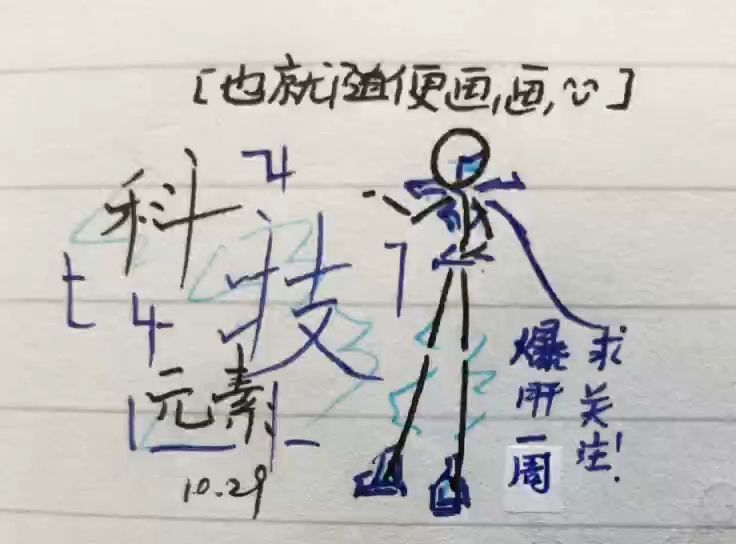 [也就随便画,画,]
科
技
元素
10.29
求关注!
爆肝一周